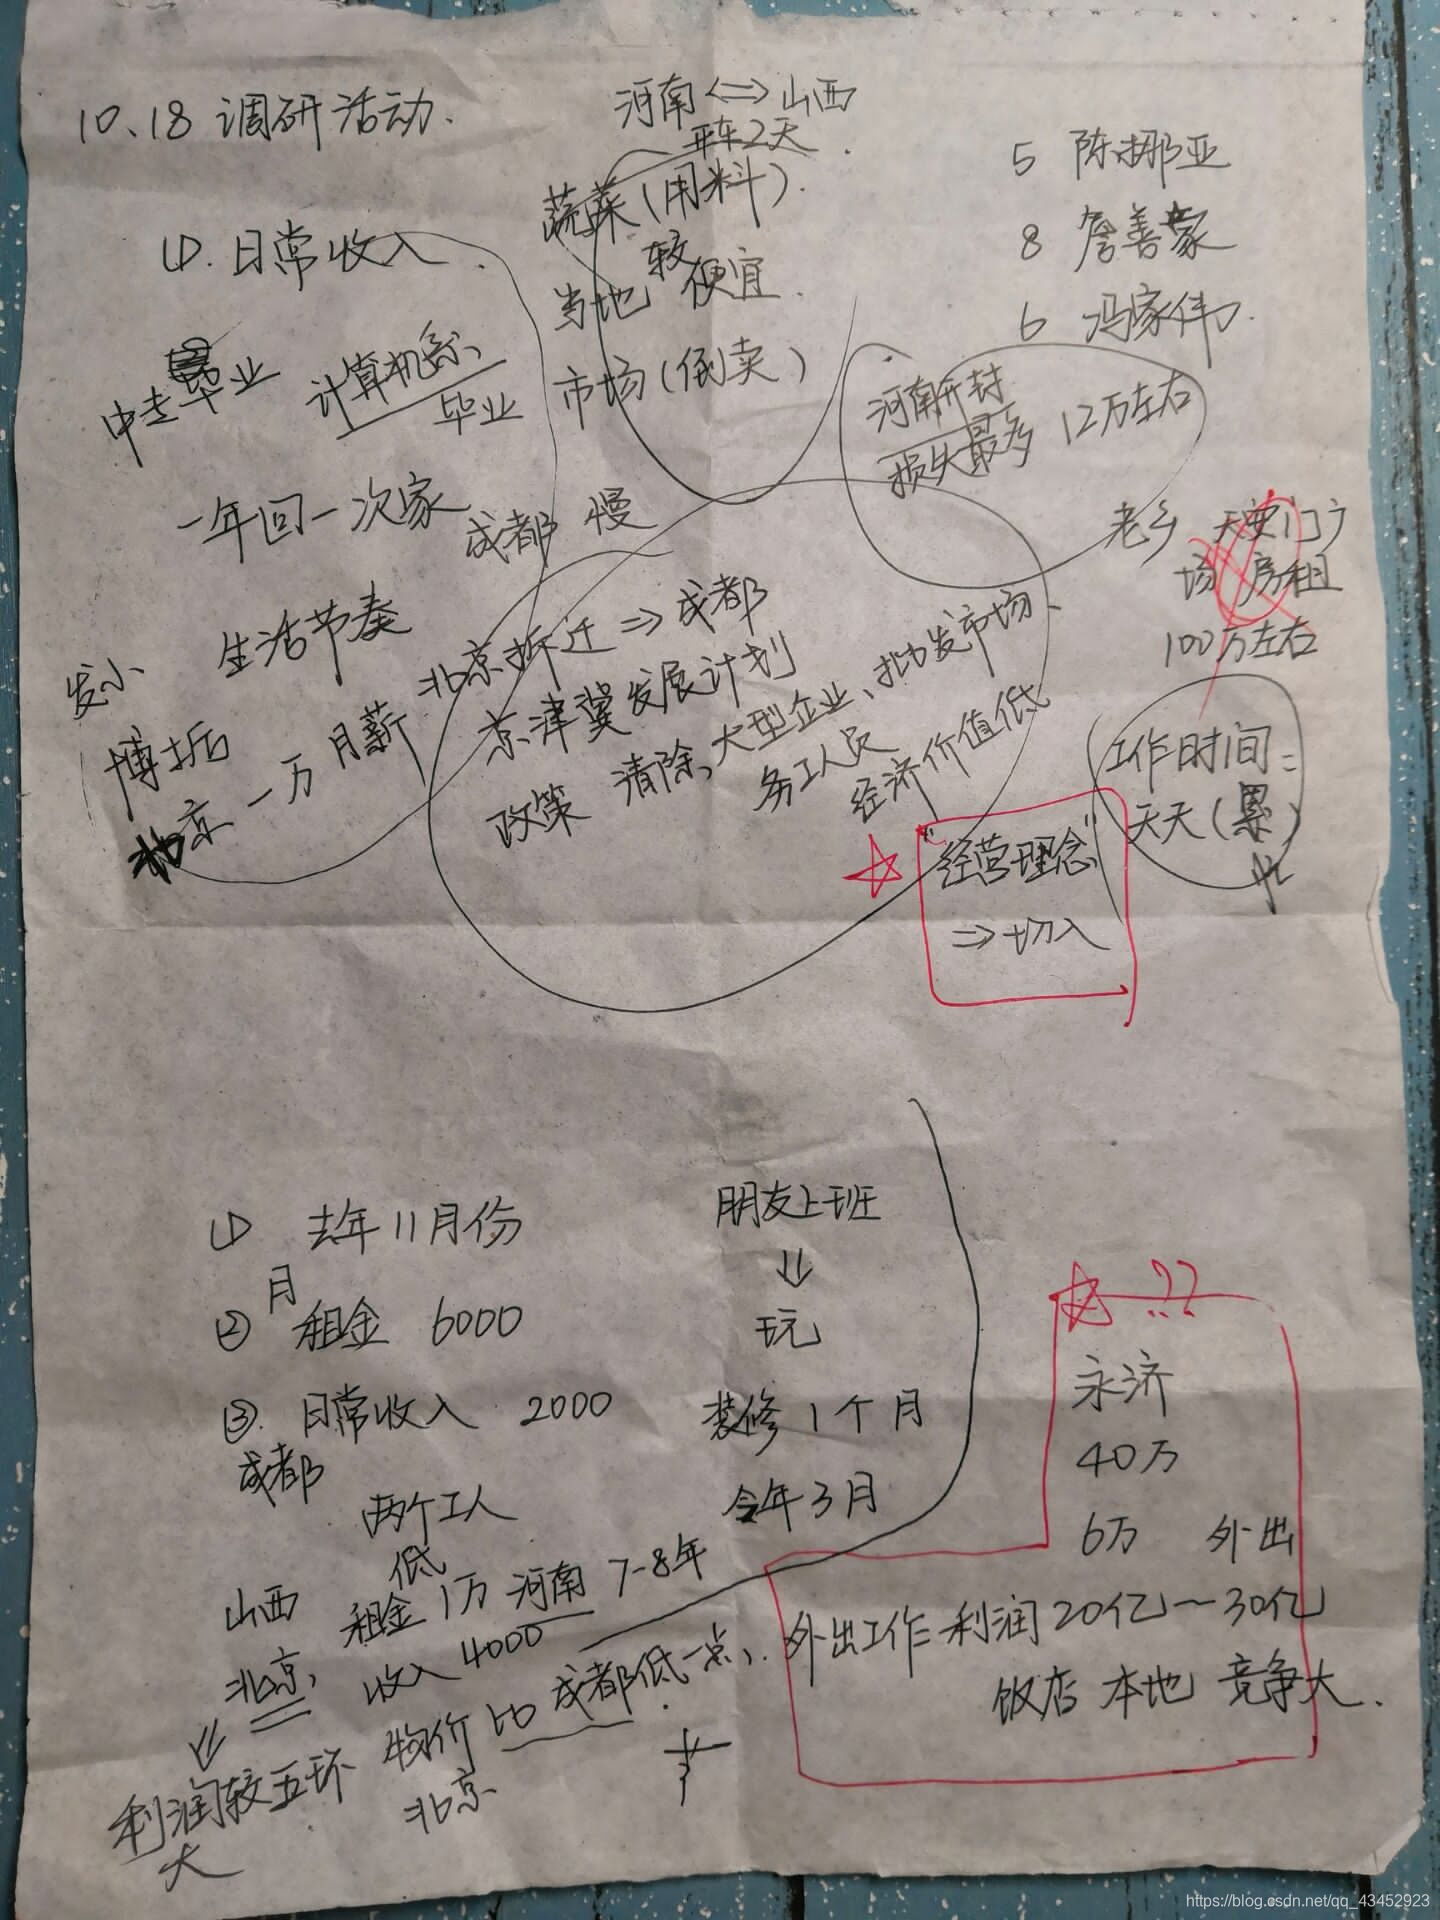 10、18 调研活动.
河南 <=> 山西
车2天
蔬菜(用料).
较
当地 便宜.
市场(倒卖)
5 陈挪亚
8 詹善豪
6 冯家伟.
①. 日常收入.
中专毕业
计算机系、
毕业
河南开封
损失最多 12万左右
一年回一次家
成都 慢
老乡 天安门广
场 房租
100万左右
发小
生活节奏
北京拆迁 => 成都
京津冀发展计划
政策 清除、大型企业、批发市场、
务工人员
经济价值低
北京 一万 月薪
工作时间:
天天(累)
"经营理念"
=> 切入
① 去年11月份
月
② 租金 6000
③. 日常收入 2000
成都
两个工人
朋友上班
⇓
玩
装修1个月
今年3月
??
永济
40万
6万 外出
外出工作 利润20亿~30亿
饭店 本地 竞争大.
山西
低
租金 1万 河南 7-8年
北京、
收入 4000
物价 比 成都低一点、.
北京
⇓
利润较五环
大
https://blog.csdn.net/qq_43452923